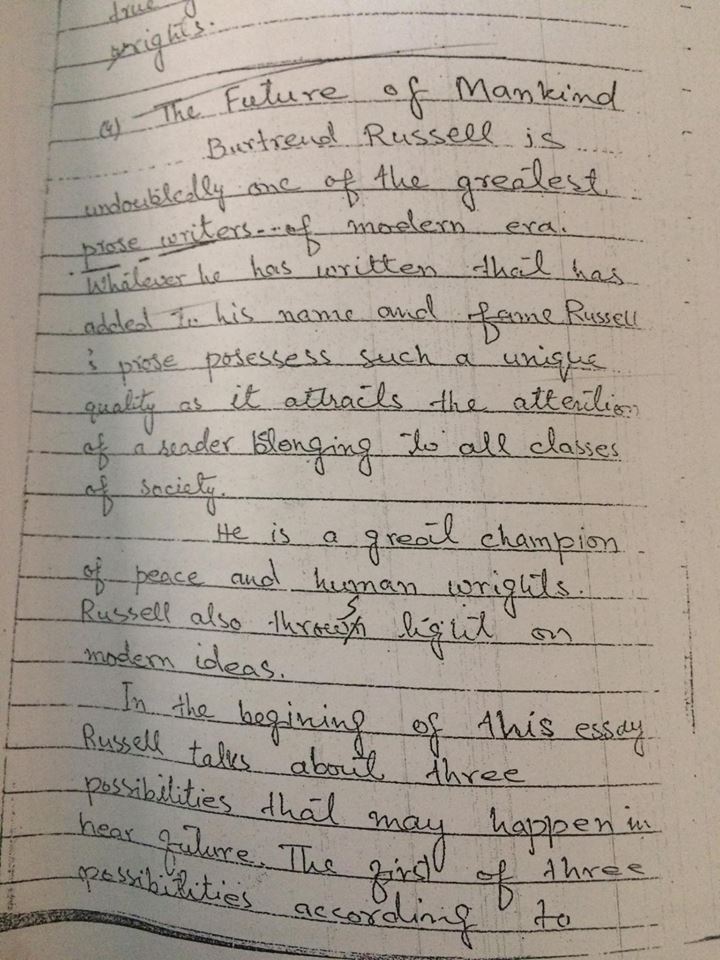 true
wrights.
(4) The Future of Mankind
Burtrend Russell is
undoubtedly one of the greatest
prose writers of modern era.
Whatever he has written that has
added to his name and fame Russell
's prose posessess such a unique
quality as it attracts the attention
of a reader blonging to all classes
of society.
He is a great champion
of peace and human wrights.
Russell also throws light on
modern ideas.
In the begining of this essay
Russell talks about three
possibilities that may happen in
near future. The first of three
possibilities according to